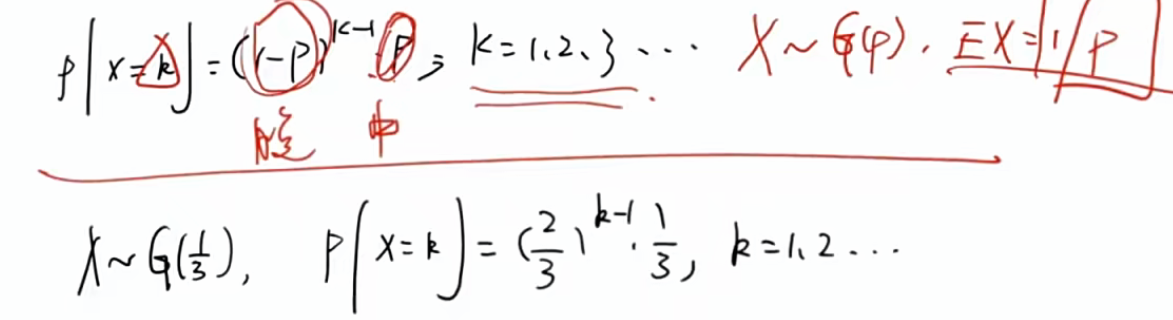 P{X=k}=(1-p)^{k-1}·p, k=1,2,3... X~G(p). EX=1/p
中
X~G(1/3), P{X=k}=(2/3)^{k-1}·1/3, k=1,2...